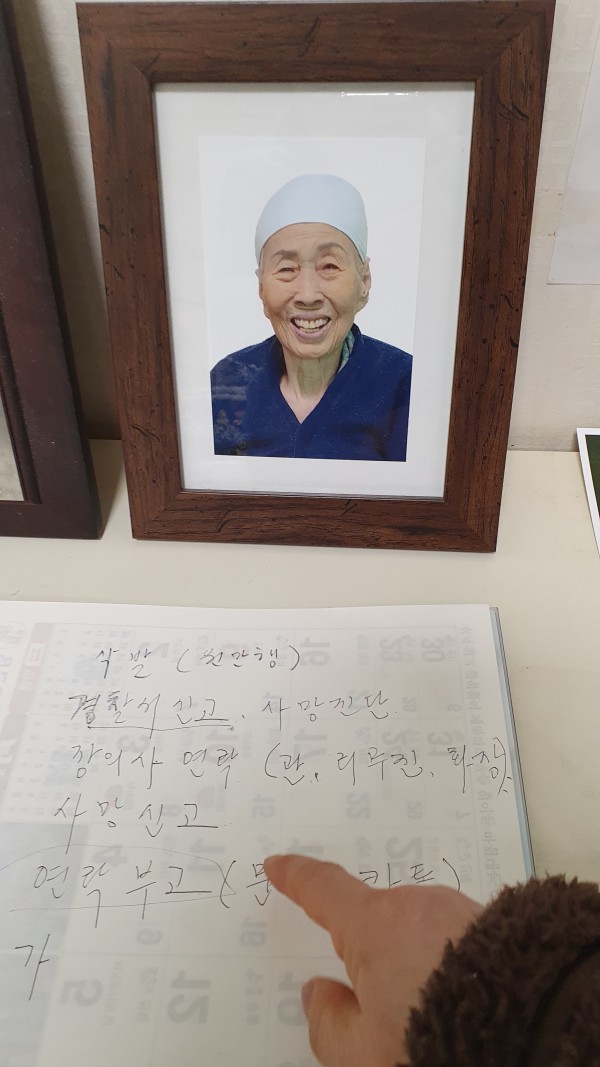 삭발 (천만행)
경찰서 신고, 사망진단.
장의사 연락 (관, 리무진, 화장)
사망신고.
연락 부고 (문 카톡)
가